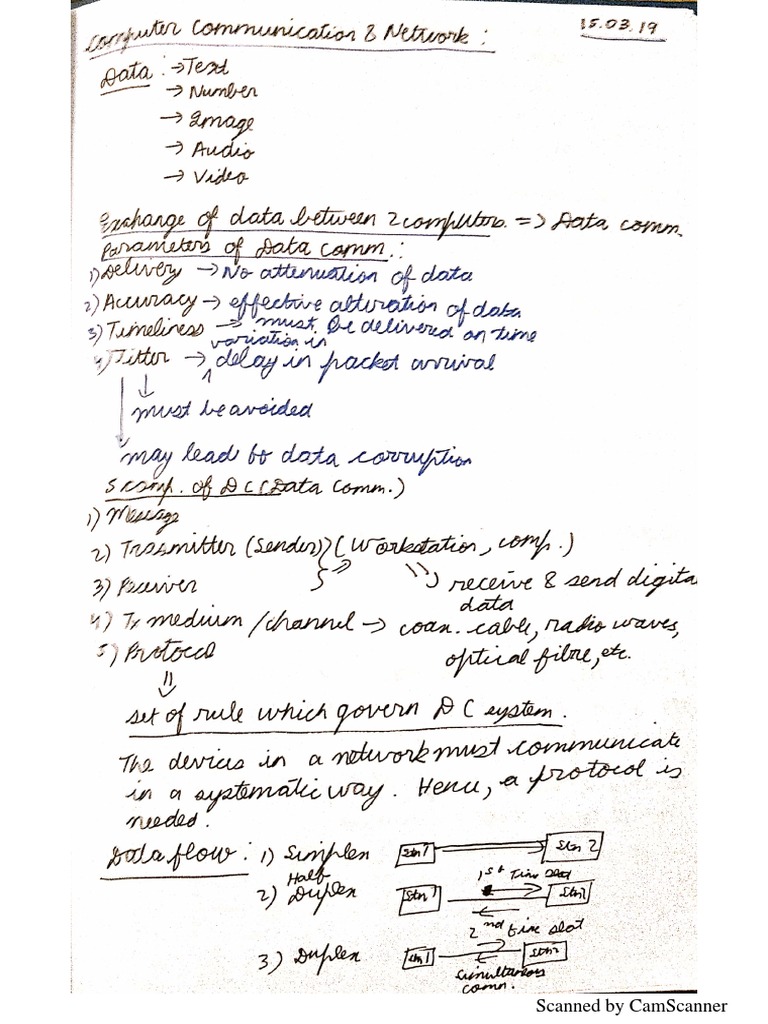 Computer Communication & Network: 15.03.19
Data: →Text
→ Number
→ Image
→ Audio
→ Video
Exchange of data between 2 computers. => Data comm.
Parameters of Data Comm.:
1) Delivery → No attenuation of data
2) Accuracy → effective alteration of data
3) Timeliness → must be delivered on time
variation in
4) Jitter → delay in packet arrival
must be avoided
may lead to data corruption
5 comp. of DC (Data Comm.)
1) Message
2) Transmitter (Sender) (Workstation, comp.)
3) Receiver receive & send digital
data
4) Tx medium / channel → coax. cable, radio waves,
5) Protocol optical fibre, etc.
set of rule which govern DC system.
The devices in a network must communicate
in a systematic way. Hence, a protocol is
needed.
Data flow: 1) Simplex Stn 1 Stn 2
Half 1st Time slot
2) Duplex Stn 1 Stn 2
2nd time slot
3) Duplex Stn 1 Stn 2
simultaneous
comm.
Scanned by CamScanner